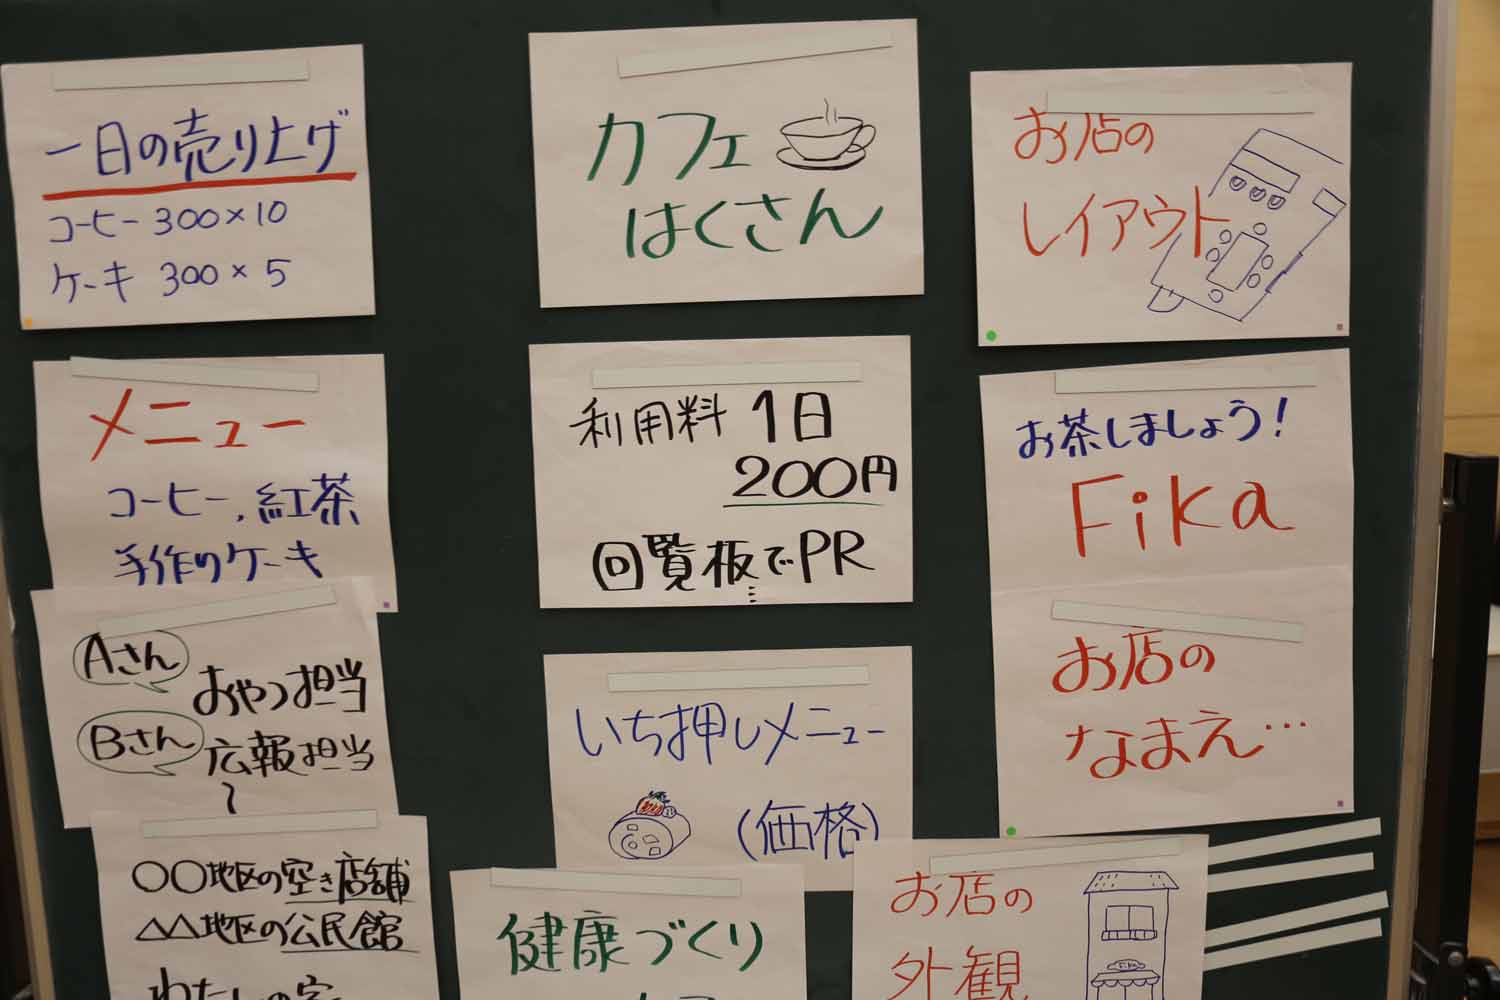 一日の売り上げ
コーヒー 300×10
ケーキ 300×5
メニュー
コーヒー、紅茶
手作りケーキ
Aさん
おやつ担当
Bさん
広報担当
〜
○○地区の空き店舗
△△地区の公民館
わたしの家
カフェ
はくさん
利用料 1日
200円
回覧板でPR
いち押しメニュー
(価格)
健康づくり
お店の
レイアウト
お茶しましょう!
Fika
お店の
なまえ…
お店の
外観
Fika